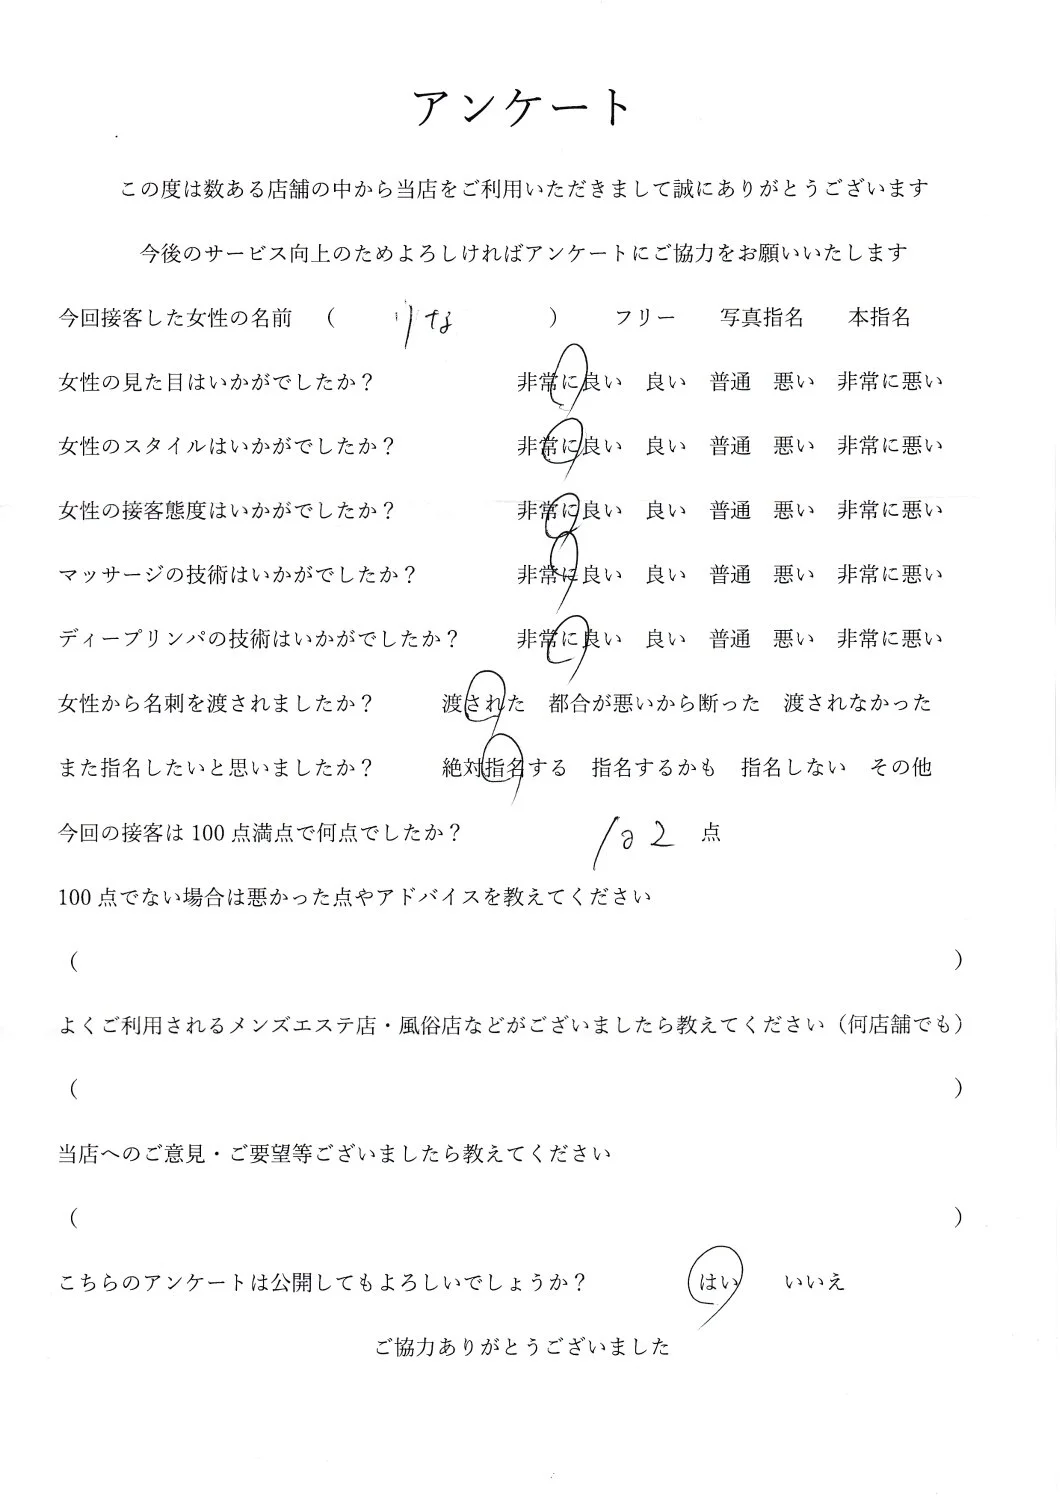 アンケート
この度は数ある店舗の中から当店をご利用いただきまして誠にありがとうございます
今後のサービス向上のためよろしければアンケートにご協力をお願いいたします
今回接客した女性の名前 ( りな ) フリー 写真指名 本指名
女性の見た目はいかがでしたか？ 非常に良い 良い 普通 悪い 非常に悪い
女性のスタイルはいかがでしたか？ 非常に良い 良い 普通 悪い 非常に悪い
女性の接客態度はいかがでしたか？ 非常に良い 良い 普通 悪い 非常に悪い
マッサージの技術はいかがでしたか？ 非常に良い 良い 普通 悪い 非常に悪い
ディープリンパの技術はいかがでしたか？ 非常に良い 良い 普通 悪い 非常に悪い
女性から名刺を渡されましたか？ 渡された 都合が悪いから断った 渡されなかった
また指名したいと思いましたか？ 絶対指名する 指名するかも 指名しない その他
今回の接客は 100 点満点で何点でしたか？ 102 点
100 点でない場合は悪かった点やアドバイスを教えてください
( )
よくご利用されるメンズエステ店・風俗店などがございましたら教えてください（何店舗でも）
( )
当店へのご意見・ご要望等ございましたら教えてください
( )
こちらのアンケートは公開してもよろしいでしょうか？ はい いいえ
ご協力ありがとうございました